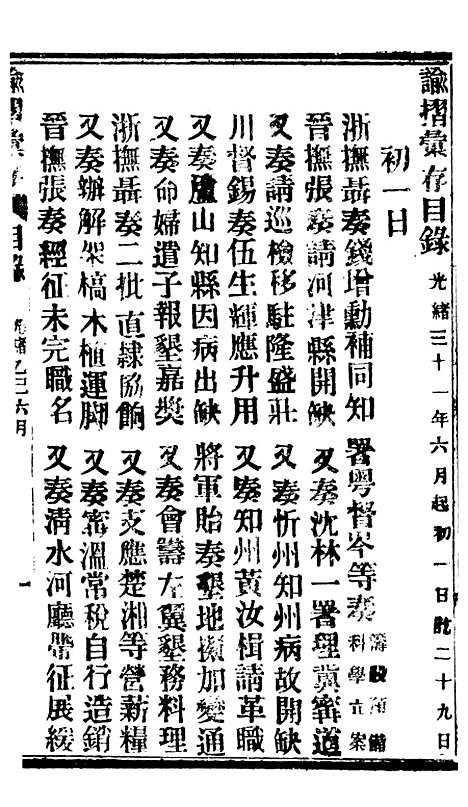 諭摺彙存目錄 光緒三十一年六月起初一日訖二十九日
初一日
浙撫聶奏錢增勳補同知 署粵督岑等奏籌設預備科學立案
晉撫張奏請河津縣開缺 又奏沈林一署理冀寧道
又奏請巡檢移駐隆盛莊 又奏忻州知州病故開缺
川督錫奏伍生輝應升用 又奏知州黃汝楫請革職
又奏廬山知縣因病出缺 將軍貽奏墾地擬加變通
又奏命婦遣子報墾嘉獎 又奏會籌左翼墾務料理
浙撫聶奏二批直隸協餉 又奏支應楚湘等營薪糧
又奏辦解架槁木植運脚 又奏甯溫常稅自行造銷
晉撫張奏經征未完職名 又奏清水河廳帶征展緩
諭摺彙存 目錄 光緒乙巳六月 一